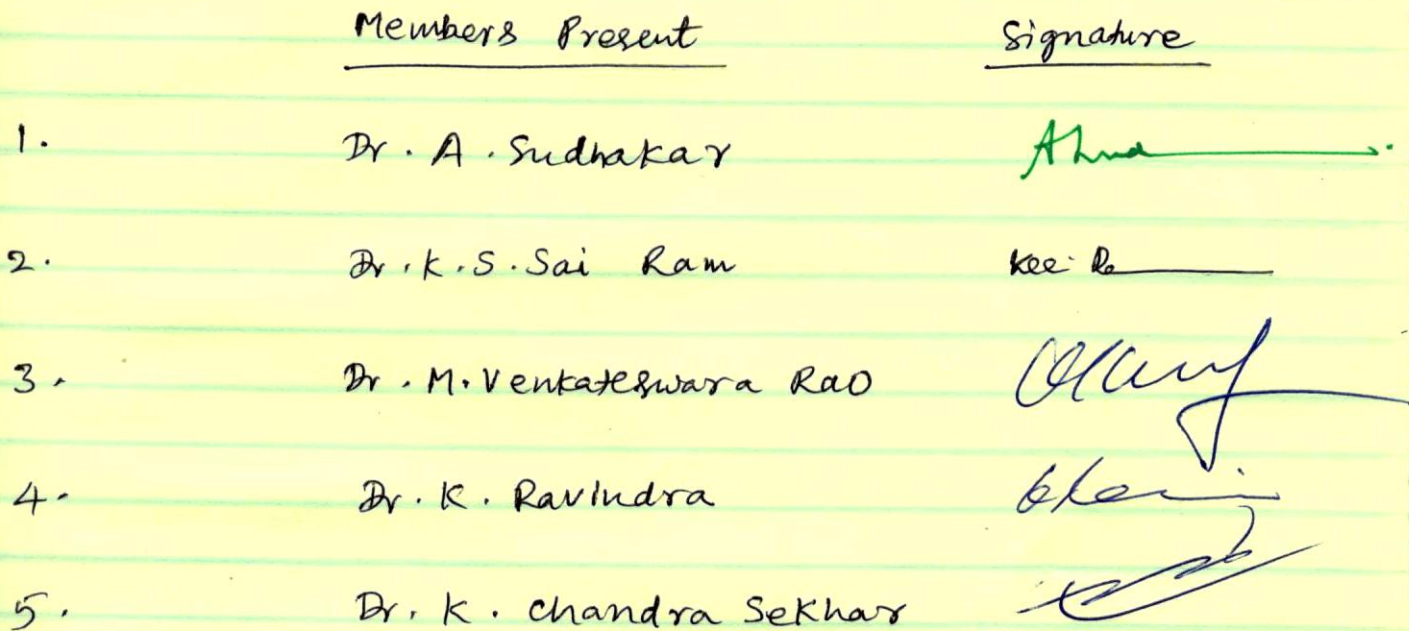 Members Present Signature
1. Dr. A. Sudhakar
2. Dr. K. S. Sai Ram
3. Dr. M. Venkateswara Rao
4. Dr. K. Ravindra
5. Dr. K. Chandra Sekhar